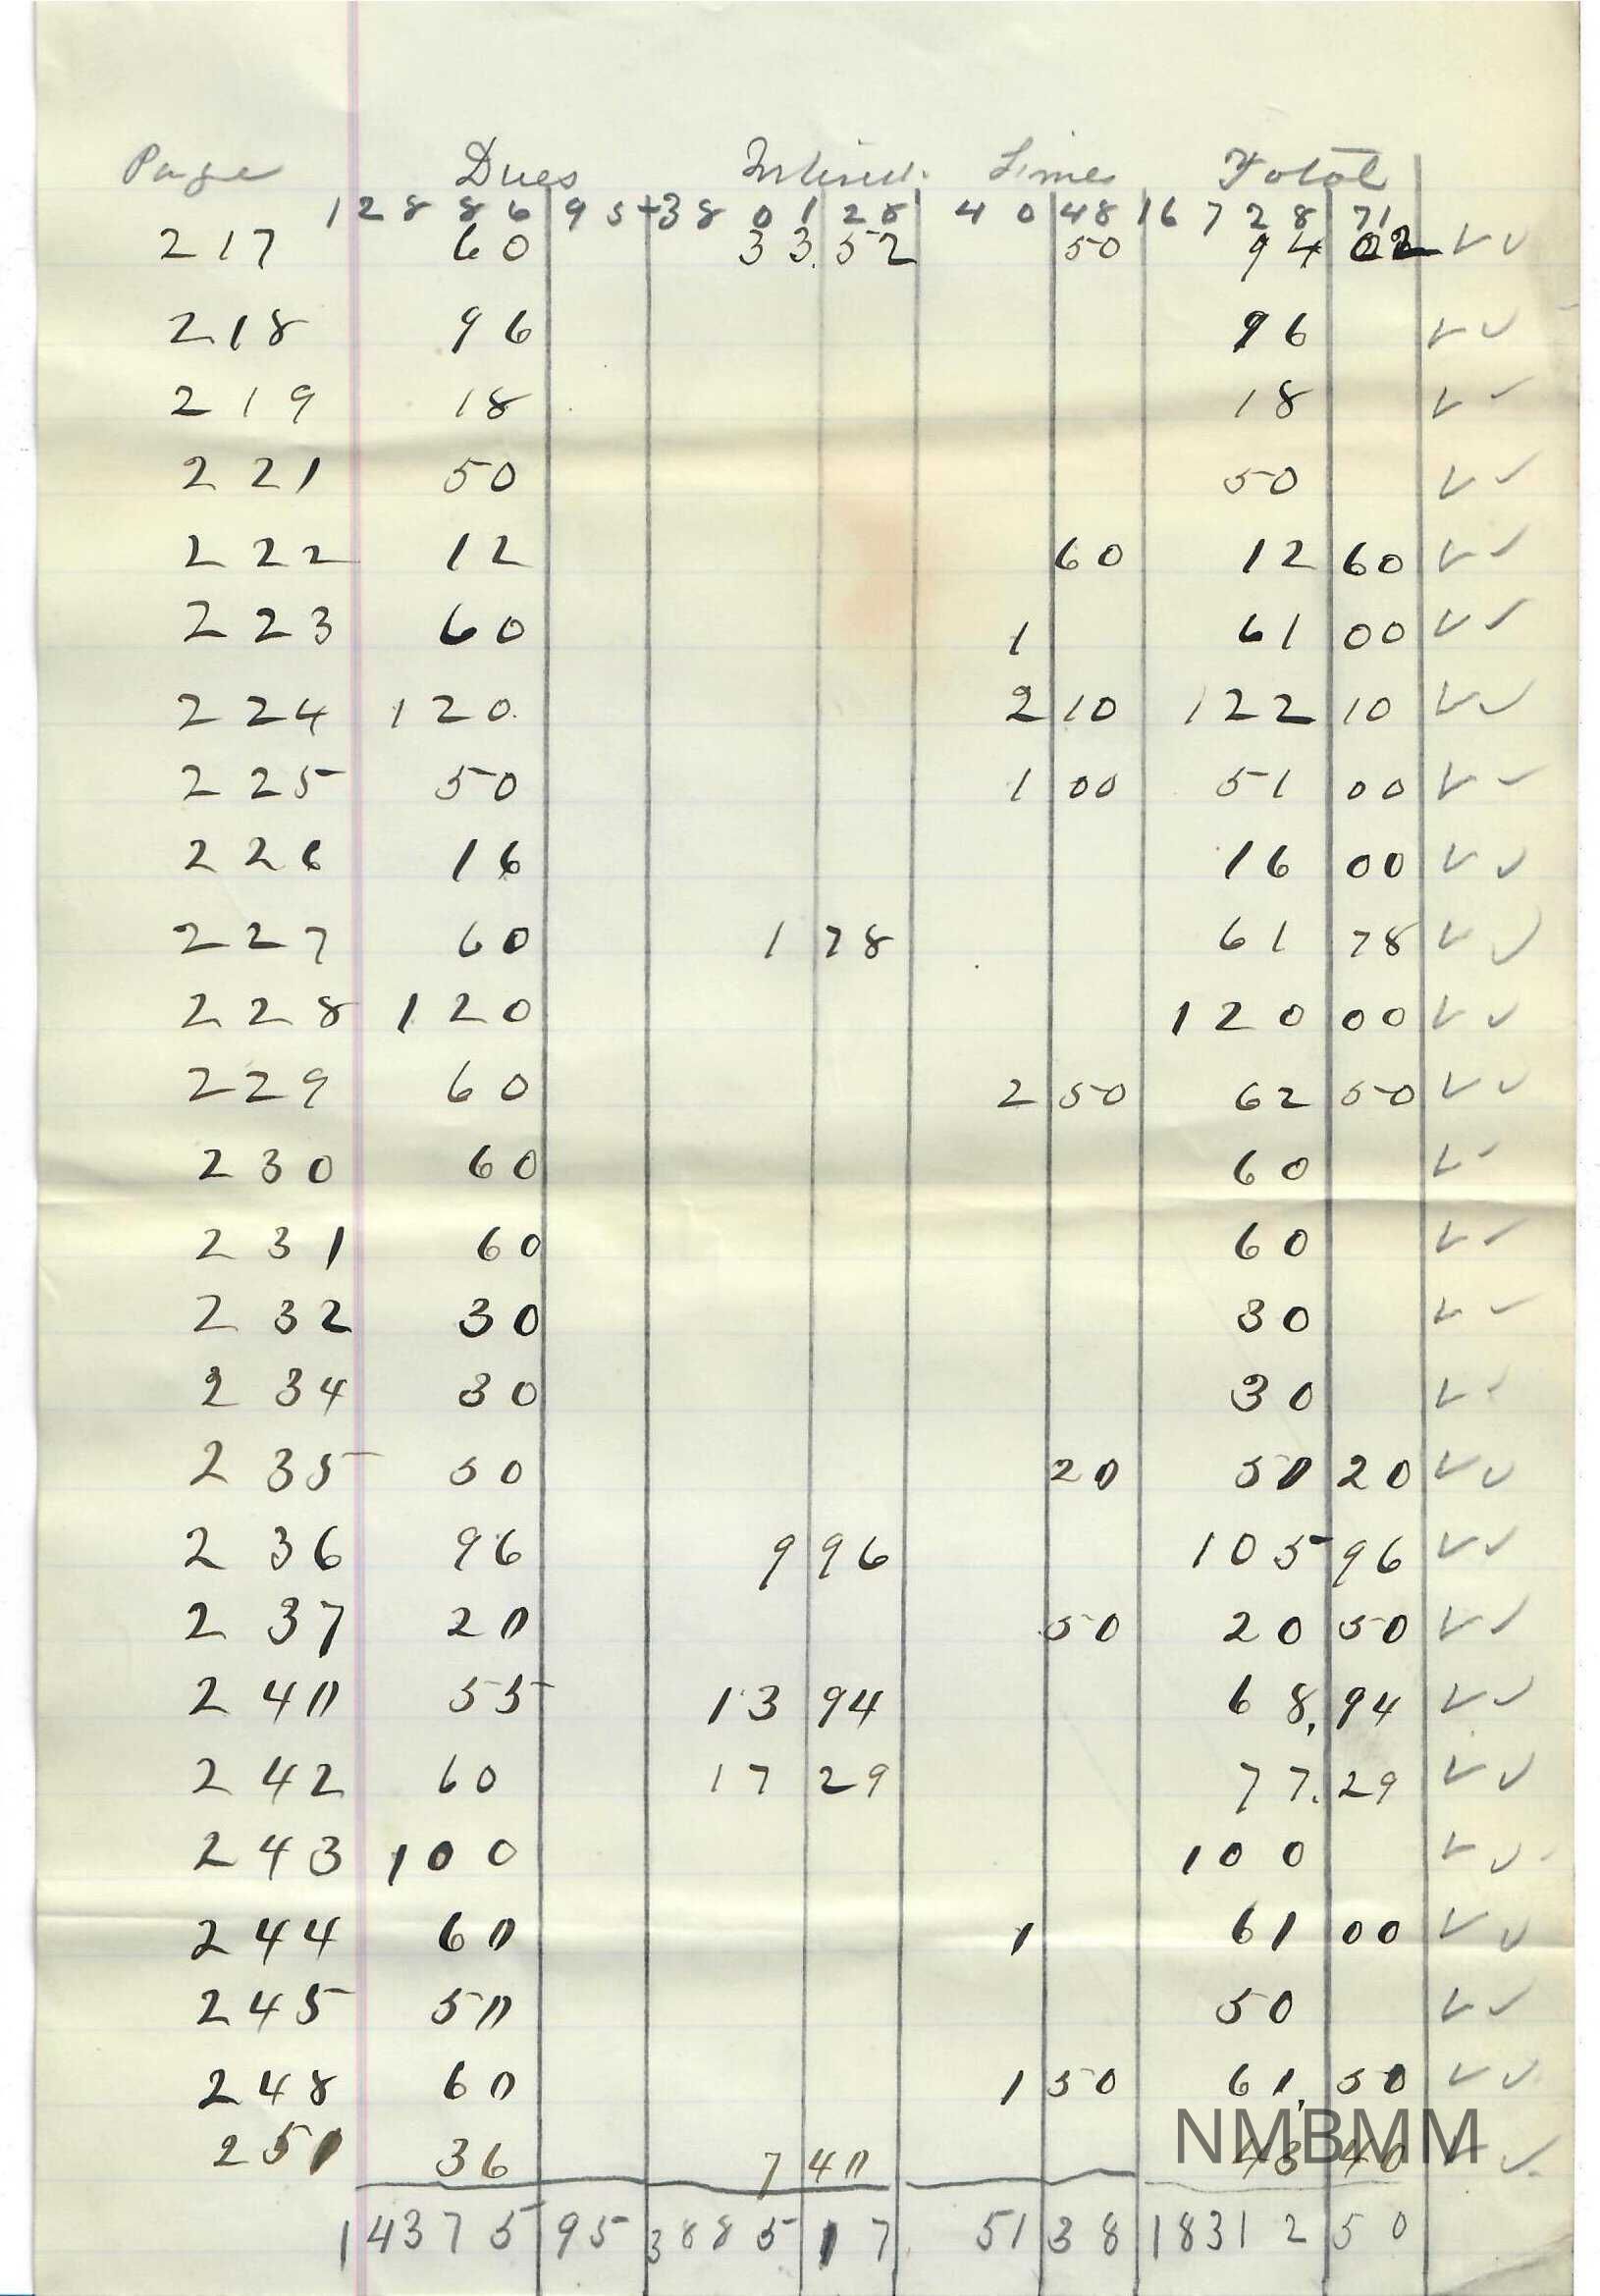 Page Dues Interest. Fines Total
12886 95 + 3801 28 40 48 16728 71
217 60 33.52 50 94 02 VV
218 96 96 VV
219 18 18 VV
221 50 50 VV
222 12 60 12 60 VV
223 60 1 61 00 VV
224 120 2 10 122 10 VV
225 50 1 00 51 00 VV
226 16 16 00 VV
227 60 1 78 61 78 VV
228 120 120 00 VV
229 60 2 50 62 50 VV
230 60 60 VV
231 60 60 VV
232 30 30 VV
234 30 30 VV
235 50 20 50 20 VV
236 96 9 96 105 96 VV
237 20 50 20 50 VV
240 55 13 94 68,94 VV
242 60 17 29 77.29 VV
243 100 100 VV
244 60 1 61 00 VV
245 50 50 VV
248 60 1 50 61,50 VV
NMBMM
250 36 7 40 43 40 VV
14375 95 3885 17 51 38 18312 50